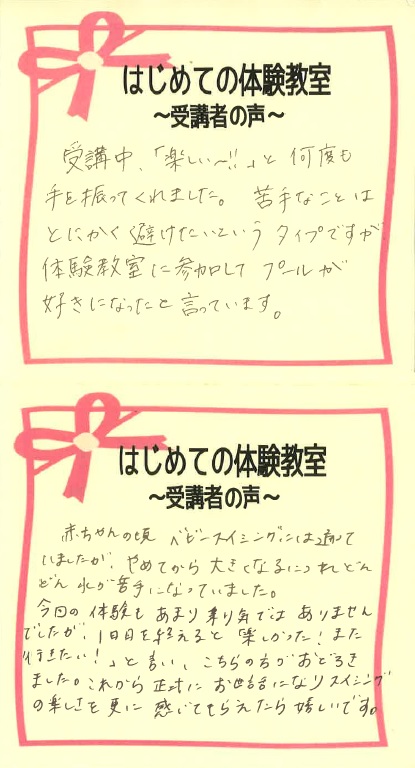 はじめての体験教室
～受講者の声～
受講中、「楽しい～!!」と何度も
手を振ってくれました。苦手なことは
とにかく避けたいというタイプですが、
体験教室に参加して プールが
好きになったと言っています。
はじめての体験教室
～受講者の声～
赤ちゃんの頃 ベビースイミングには通って
いましたが、やめてから大きくなるにつれどん
どん水が苦手になっていました。
今回の体験もあまり乗り気ではありません
でしたが、1日目を終えると「楽しかった!また
行きたい!」と言い、こちらの方がおどろき
ました。これから正式にお世話になりスイミング
の楽しさを更に感じてもらえたら嬉しいです。